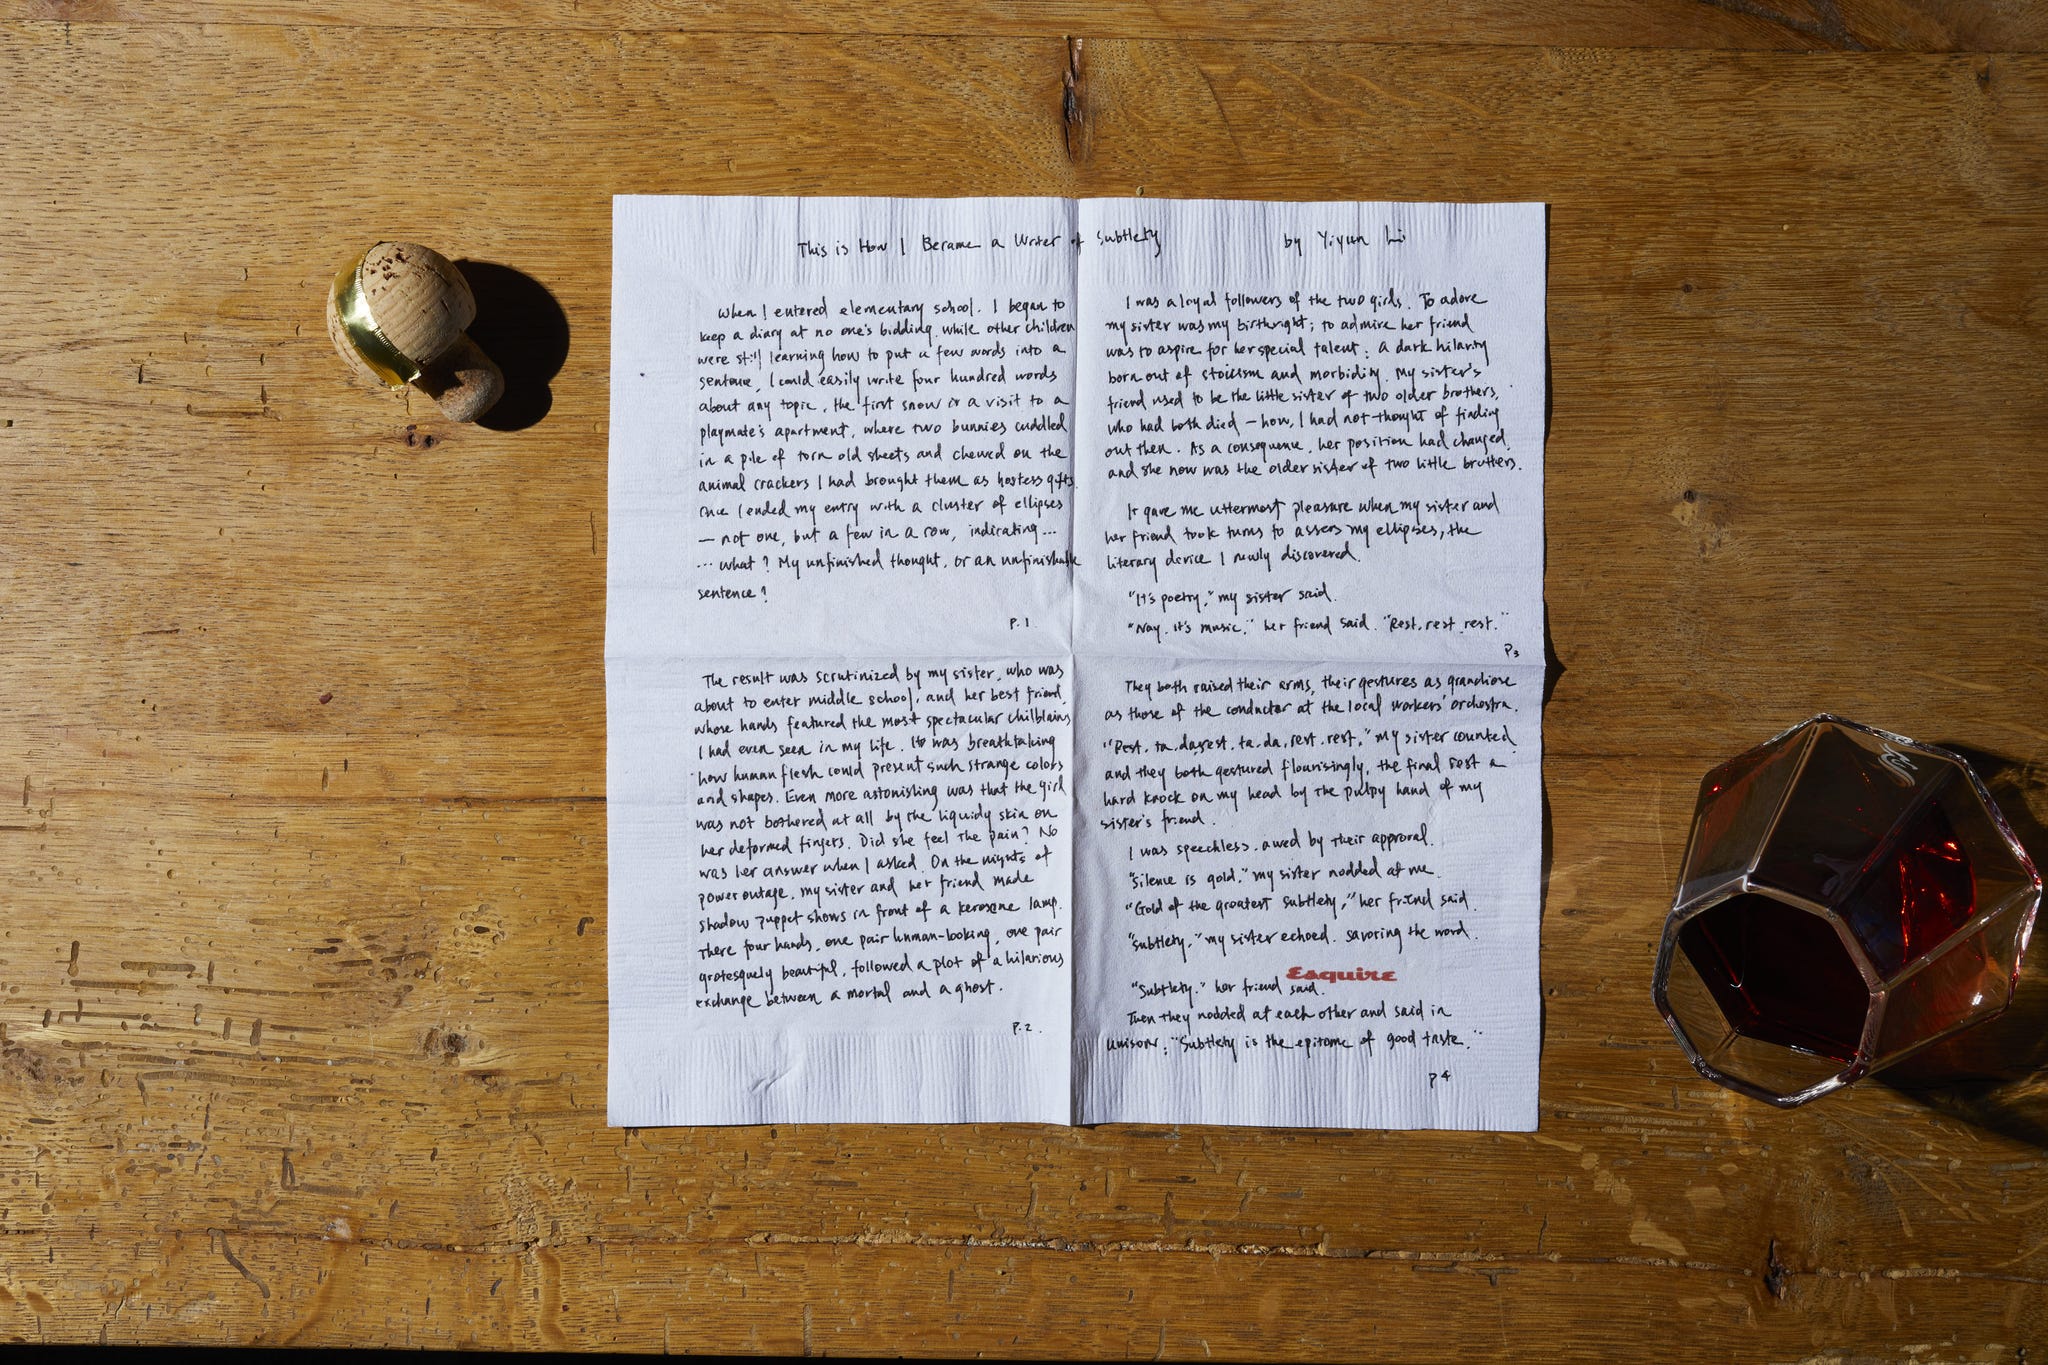 This is How I Became a Writer of Subtlety by Yiyun Li
When I entered elementary school, I began to
keep a diary at no one's bidding. While other children
were still learning how to put a few words into a
sentence, I could easily write four hundred words
about any topic, the first snow or a visit to a
playmate's apartment, where two bunnies cuddled
in a pile of torn old sheets and chewed on the
animal crackers I had brought them as hostess gifts.
Once I ended my entry with a cluster of ellipses
— not one, but a few in a row, indicating...
... what? My unfinished thought, or an unfinishable
sentence?
P. 1.
The result was scrutinized by my sister, who was
about to enter middle school, and her best friend,
whose hands featured the most spectacular chilblains
I had even seen in my life. It was breathtaking
how human flesh could present such strange colors
and shapes. Even more astonishing was that the girl
was not bothered at all by the liquidy skin on
her deformed fingers. Did she feel the pain? No
was her answer when I asked. On the nights of
power outage, my sister and her friend made
shadow puppet shows in front of a kerosene lamp.
There four hands, one pair human-looking, one pair
grotesquely beautiful, followed a plot of a hilarious
exchange between a mortal and a ghost.
P. 2.
I was a loyal followers of the two girls. To adore
my sister was my birthright; to admire her friend
was to aspire for her special talent: A dark hilarity
born out of stoicism and morbidity. My sister's
friend used to be the little sister of two older brothers,
who had both died — how, I had not thought of finding
out then. As a consequence, her position had changed,
and she now was the older sister of two little brothers.
It gave me uttermost pleasure when my sister and
her friend took turns to assess my ellipses, the
literary device I newly discovered.
"It's poetry," my sister said.
"Nay. It's music," her friend said. "Rest, rest, rest."
P3
They both raised their arms, their gestures as grandiose
as those of the conductor at the local workers' orchestra.
"Rest, ta, da, rest, ta, da, rest, rest," my sister counted,
and they both gestured flourisingly, the final rest a
hard knock on my head by the pulpy hand of my
sister's friend.
I was speechless, awed by their approval.
"Silence is gold," my sister nodded at me.
"Gold of the greatest subtlety," her friend said.
"Subtlety," my sister echoed, savoring the word.
Esquire
"Subtlety," her friend said.
Then they nodded at each other and said in
unison: "Subtlety is the epitome of good taste."
P 4